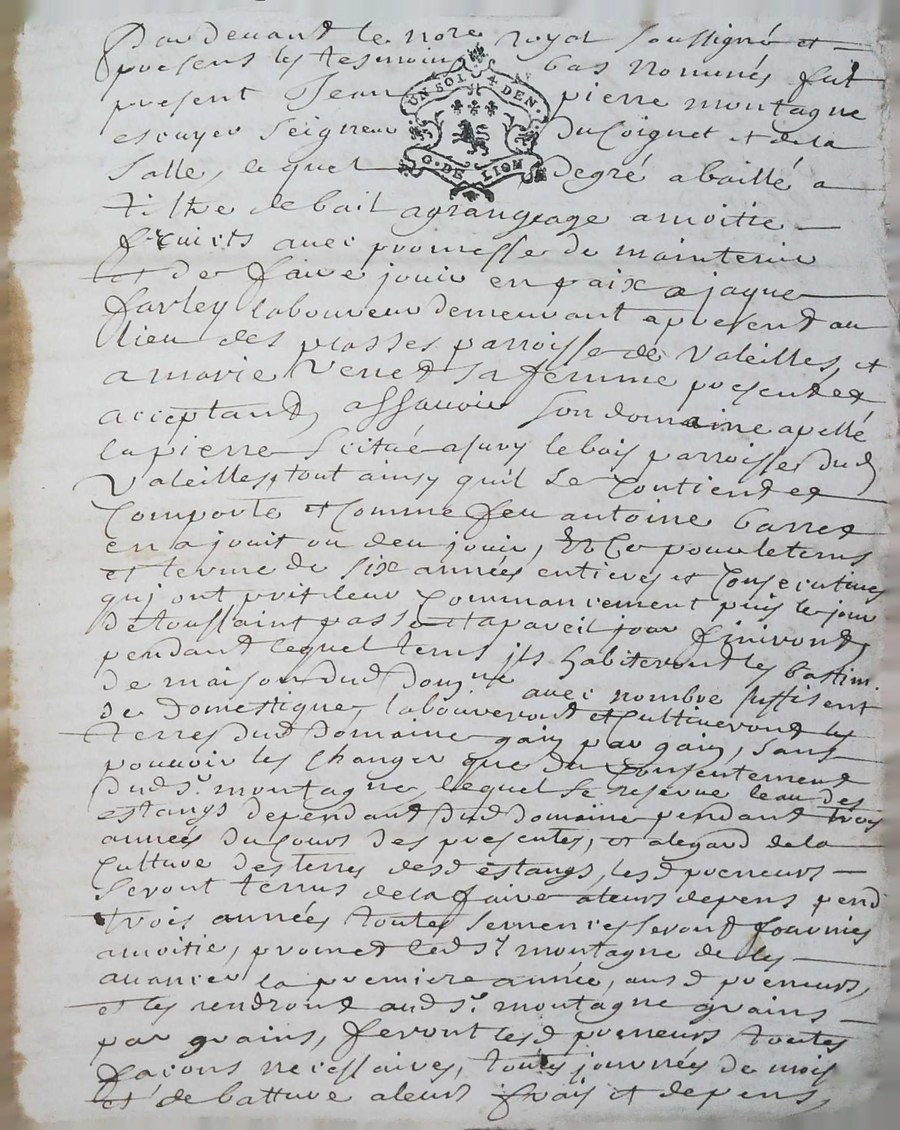 Pardevant le no.re royal soussigné et
presens les tesmoins bas nommés fut
UN SOL 4 DEN.
present Jean pierre montagne
escuyer seigneur du Poignet et dela
G. DE LION
Salle, lequel degré abaillé a
tiltre de bail agrangeage amoitie
fruicts avec promesse de maintenir
et de faire jouir en paix a jaque
farley laboureur demeurant apresent au
lieu des prasses parroisse de Valeilles, et
a marie Venet sa femme present et
acceptant, assavoir son domaine apellé
lapierre scitué asury lebois parroisse dud
Valeilles, tout ainsy quil se contient et
comporte et comme feu antoine barret
en a jouit ou deu jouir, et ce pour le tems
et terme de six années entieres et consecutives
qui ont prit leur commancement puis le jour
detoussaint passé et apareil jour finiront,
pendant lequel tems ils habiteront les bastim.
de maison dud Dom.ne avec nombre suffisent
de domestique, laboureront et cultiveront les
terres dud Domaine gain par gain, sans
pouvoir les changer que du consentement
dud s.r montagne, lequel se reserve leau des
estangs dependant dud domaine pendant trois
années du cours des presentes, et alegard de la
culture des terres desd estangs, lesd preneurs
seront tenus de la faire aleurs depens pend
trois années toutes semences seront fournies
amoitie, promet led s.r montagne de les
avancer la premiere année, ausd preneurs,
et les rendront aud s.r montagne grains
par grains, feront lesd preneurs toutes
façons necessaires, toutes journées de mois
et de batture aleurs frais et depens,